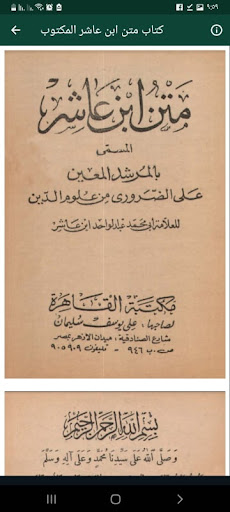 ٩:٥٩
كتاب متن ابن عاشر المكتوب
متن ابن عاشر
المسمى
بالمرشد المعين
على الضروري من علوم الدين
للعلامة أبي محمد عبد الواحد ابن عاشر
مكتبة القاهرة
لصاحبها: علي يوسف سليمان
شارع الصنادقية، ميدان الأزهر بمصر
ص.ب ٩٤٦ - تليفون ٩٠٥٩٠٩
بسم الله الرحمن الرحيم
وَصَلَّى اللهُ عَلَى سَيِّدِنَا مُحَمَّدٍ وَعَلَى آلِهِ وَسَلَّمَ